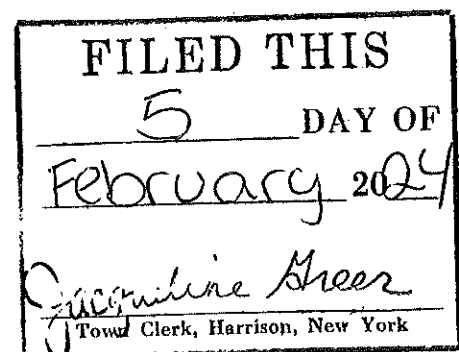 FILED THIS
5 DAY OF
February 2024
Jacqueline Greer
Town Clerk, Harrison, New York